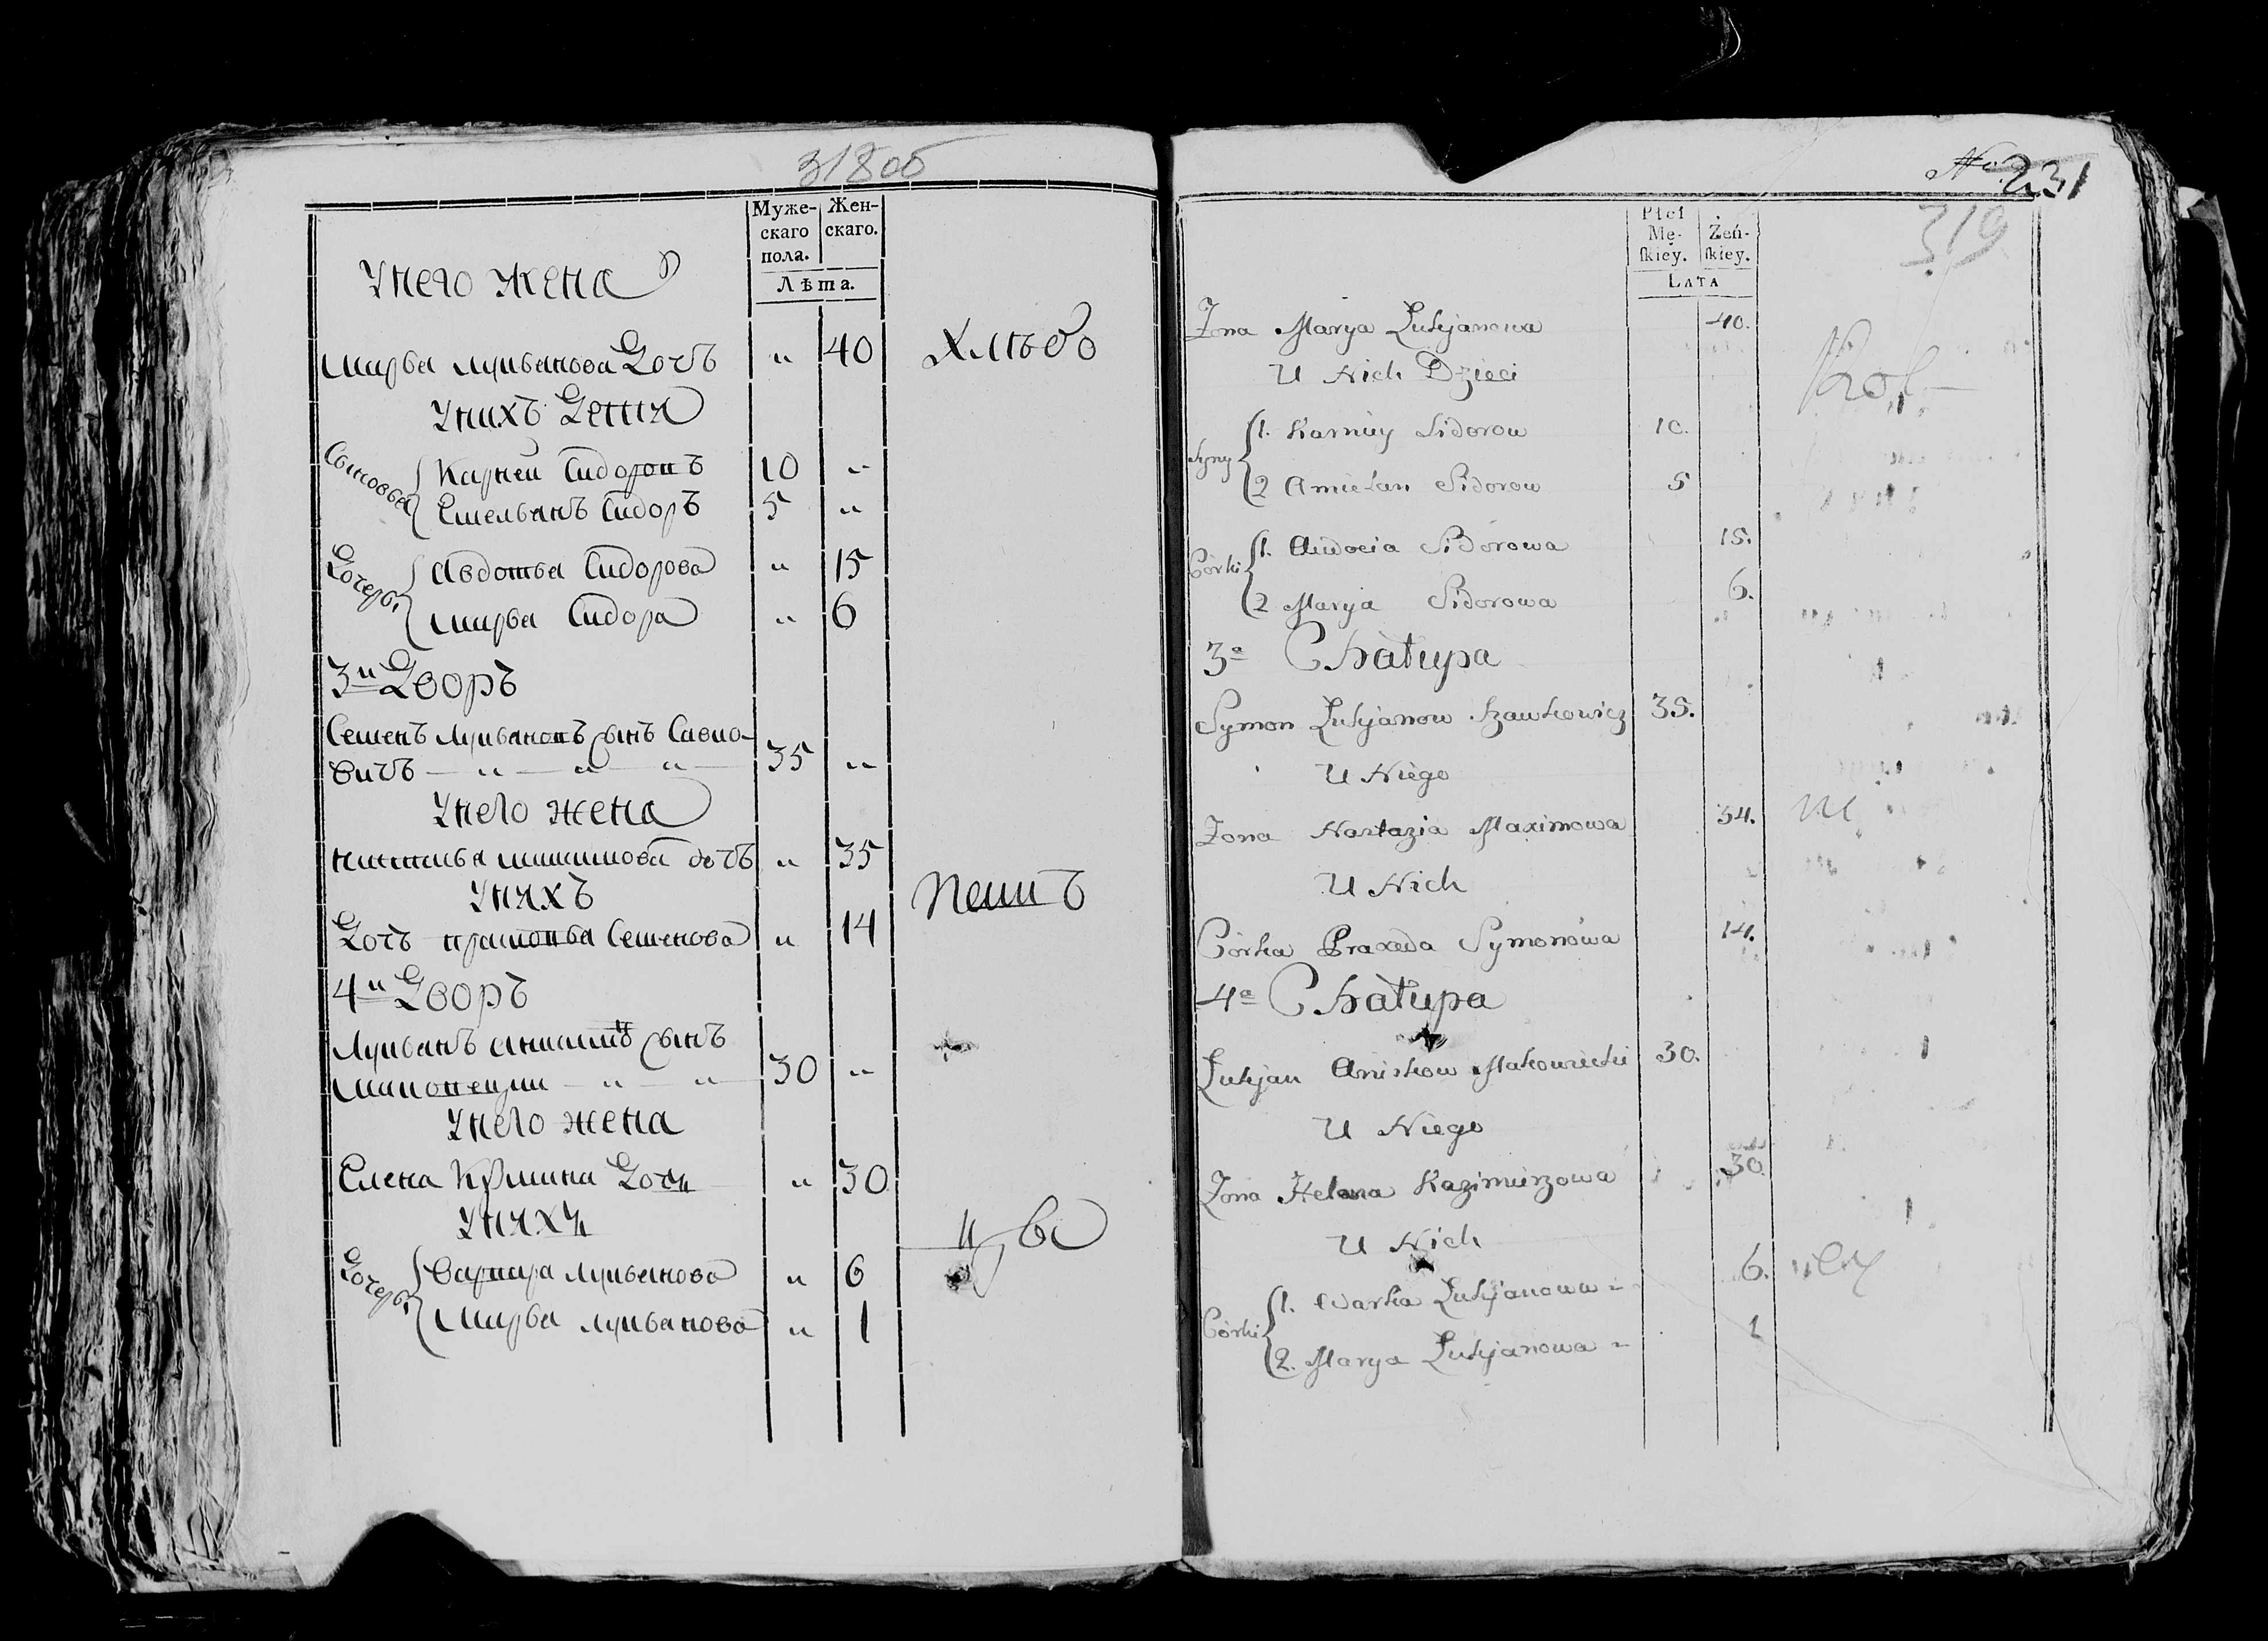 318об
Муже-
скаго
пола.
Жен-
скаго.
Лѣта.
Унего жена
Марья Лукьанова Дочь " 40
Унихъ Дети
Сыновья
Карней Сидоровъ 10 "
Емельянъ Сидоръ 5 "
Дочери
Авдотья Сидорова " 15
Марья Сидора " 6
3й Дворъ
Семенъ Лукьановъ сынъ Савко-
вичь " " " 35 "
Унего жена
дочь " 35
Унихъ
Дочь Семенова " 14
4й Дворъ
Лукьанъ сынъ
" " 30 "
Унего жена
Елена Дочь " 30
Унихъ
Дочери
Варвара Лукьанова " 6
Марья Лукьанова " 1
No 231
319
Płci
Mę-
skiey.
Żeń-
skiey.
LATA
Żona Marya Łukjanowa 40.
U Nich Dzieci
Syny
1. Karniey Sidorow 10.
2 Amielan Sidorow 5
Córki
1. Audocia Sidorowa 15.
2 Marya Sidorowa 6.
3a Chałupa
Symon Łukjanow Szawkowicz 35.
U Niego
Żona Nastazia Maximowa 34.
U Nich
Córka Praxeda Symonowa 14.
4a Chałupa
Łukjan Aniskow Makowiecki 30.
U Niego
Żona Helena Kazimierzowa 30.
U Nich
Córki
1. Warka Łukjanowa 6.
2. Marya Łukjanowa 1